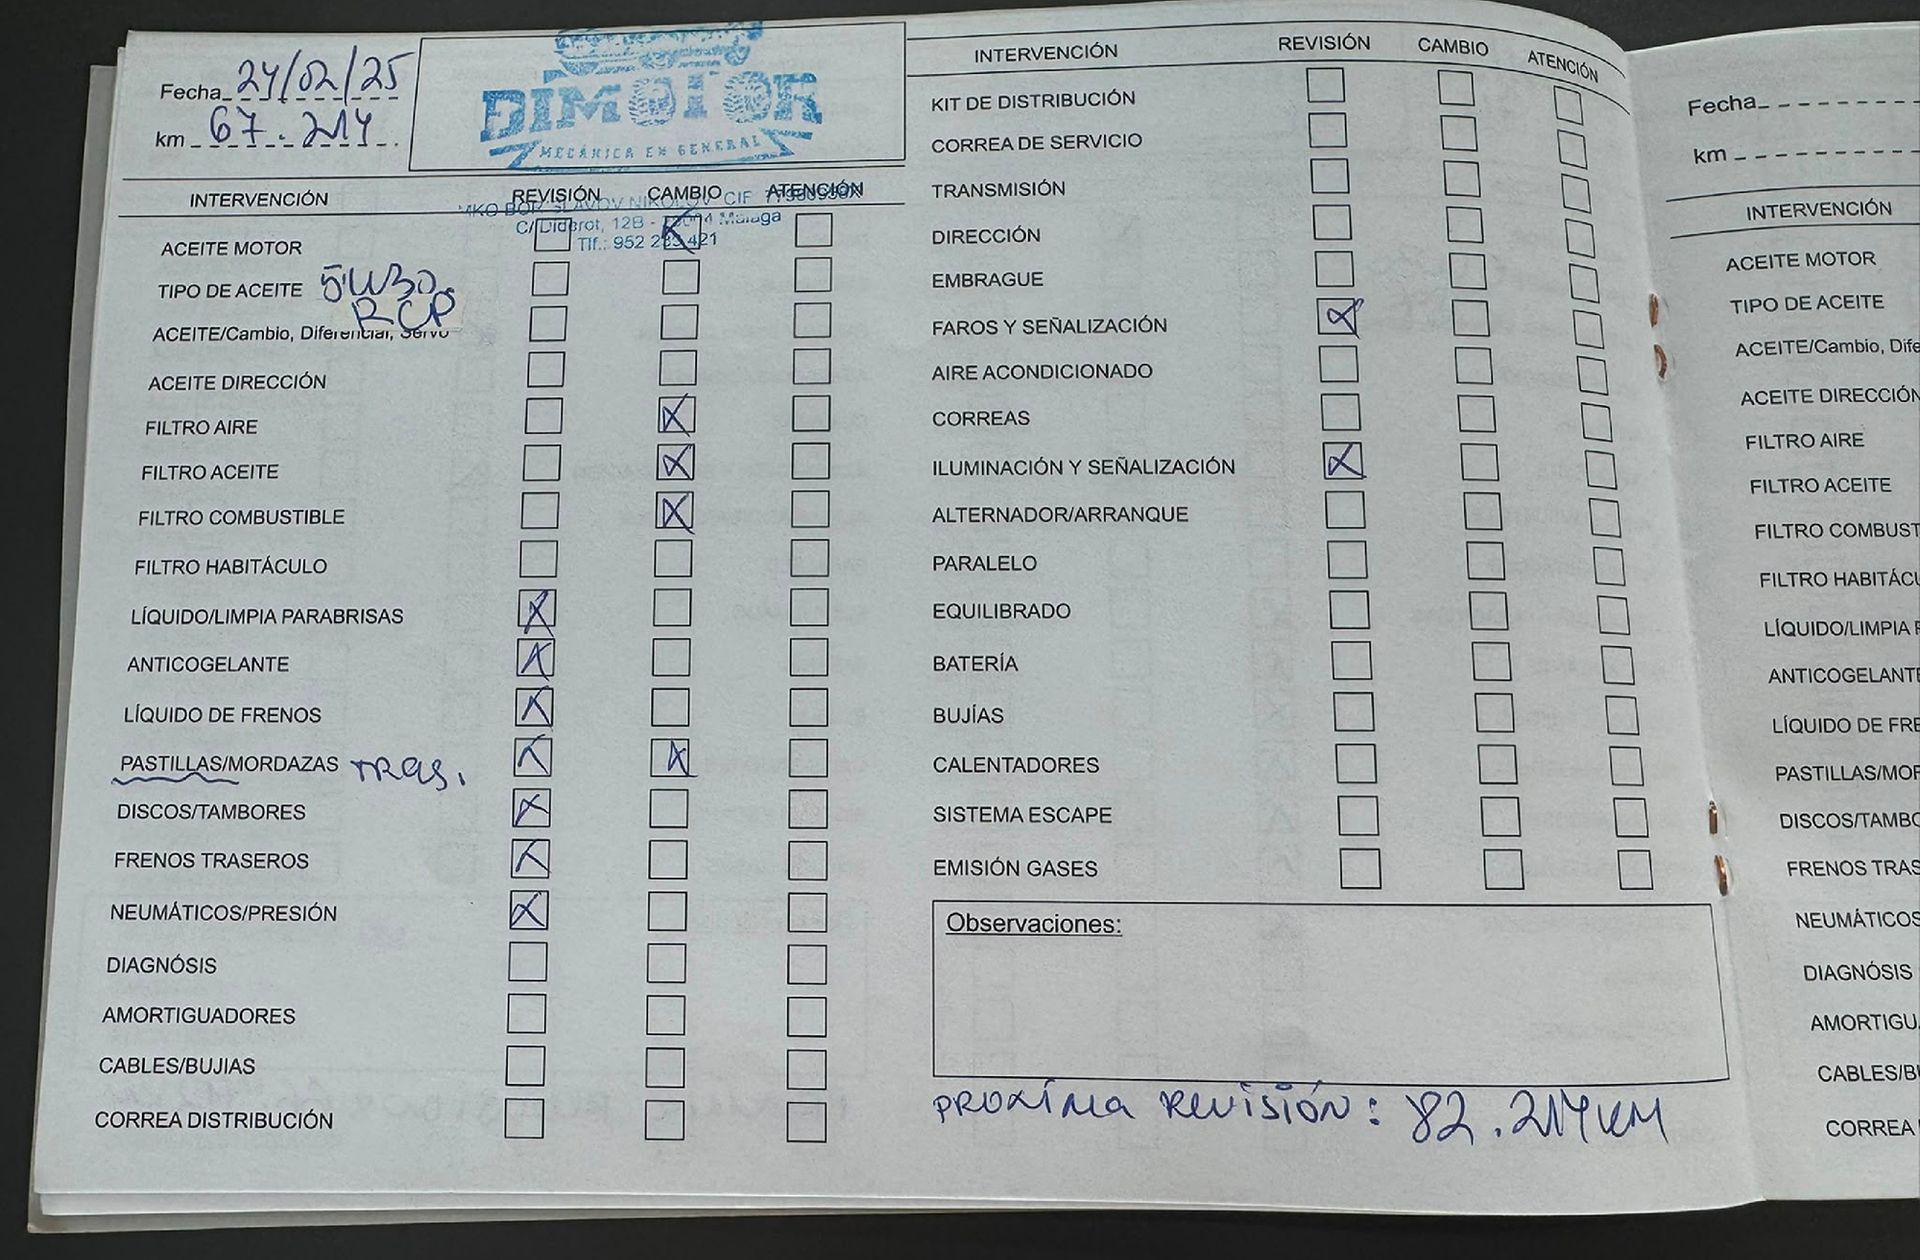 Fecha 24/02/25
km 67.214
DIMOTOR
MECÁNICA EN GENERAL
C/ Diderot, 12B - Málaga
Tlf.: 952 421
INTERVENCIÓN REVISIÓN CAMBIO ATENCIÓN
ACEITE MOTOR
TIPO DE ACEITE 5W30.
RCP
ACEITE/Cambio, Diferencial, Servo
ACEITE DIRECCIÓN
FILTRO AIRE
FILTRO ACEITE
FILTRO COMBUSTIBLE
FILTRO HABITÁCULO
LÍQUIDO/LIMPIA PARABRISAS
ANTICOGELANTE
LÍQUIDO DE FRENOS
PASTILLAS/MORDAZAS TRAS.
DISCOS/TAMBORES
FRENOS TRASEROS
NEUMÁTICOS/PRESIÓN
DIAGNÓSIS
AMORTIGUADORES
CABLES/BUJIAS
CORREA DISTRIBUCIÓN
INTERVENCIÓN REVISIÓN CAMBIO ATENCIÓN
KIT DE DISTRIBUCIÓN
CORREA DE SERVICIO
TRANSMISIÓN
DIRECCIÓN
EMBRAGUE
FAROS Y SEÑALIZACIÓN
AIRE ACONDICIONADO
CORREAS
ILUMINACIÓN Y SEÑALIZACIÓN
ALTERNADOR/ARRANQUE
PARALELO
EQUILIBRADO
BATERÍA
BUJÍAS
CALENTADORES
SISTEMA ESCAPE
EMISIÓN GASES
Observaciones:
PROXÍMA REVISIÓN: 82.214 KM
Fecha
km
INTERVENCIÓN
ACEITE MOTOR
TIPO DE ACEITE
ACEITE/Cambio, Dife
ACEITE DIRECCIÓN
FILTRO AIRE
FILTRO ACEITE
FILTRO COMBUST
FILTRO HABITÁCU
LÍQUIDO/LIMPIA P
ANTICOGELANTE
LÍQUIDO DE FRE
PASTILLAS/MOR
DISCOS/TAMBO
FRENOS TRAS
NEUMÁTICOS
DIAGNÓSIS
AMORTIGU
CABLES/B
CORREA